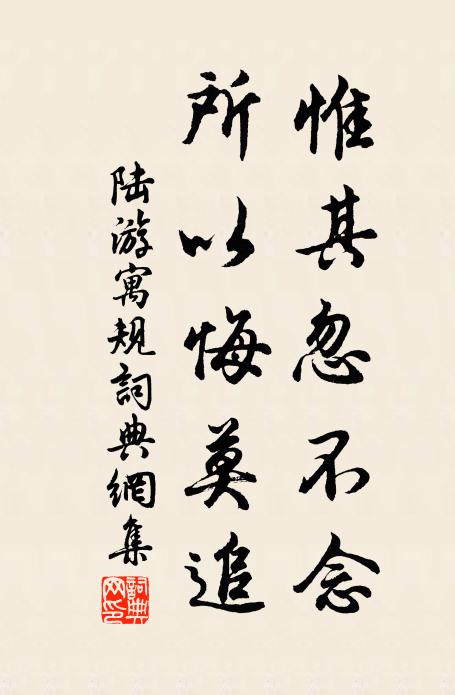 惟其忽不念
所以悔莫追
陆游寓规詞典網集
詞典网印